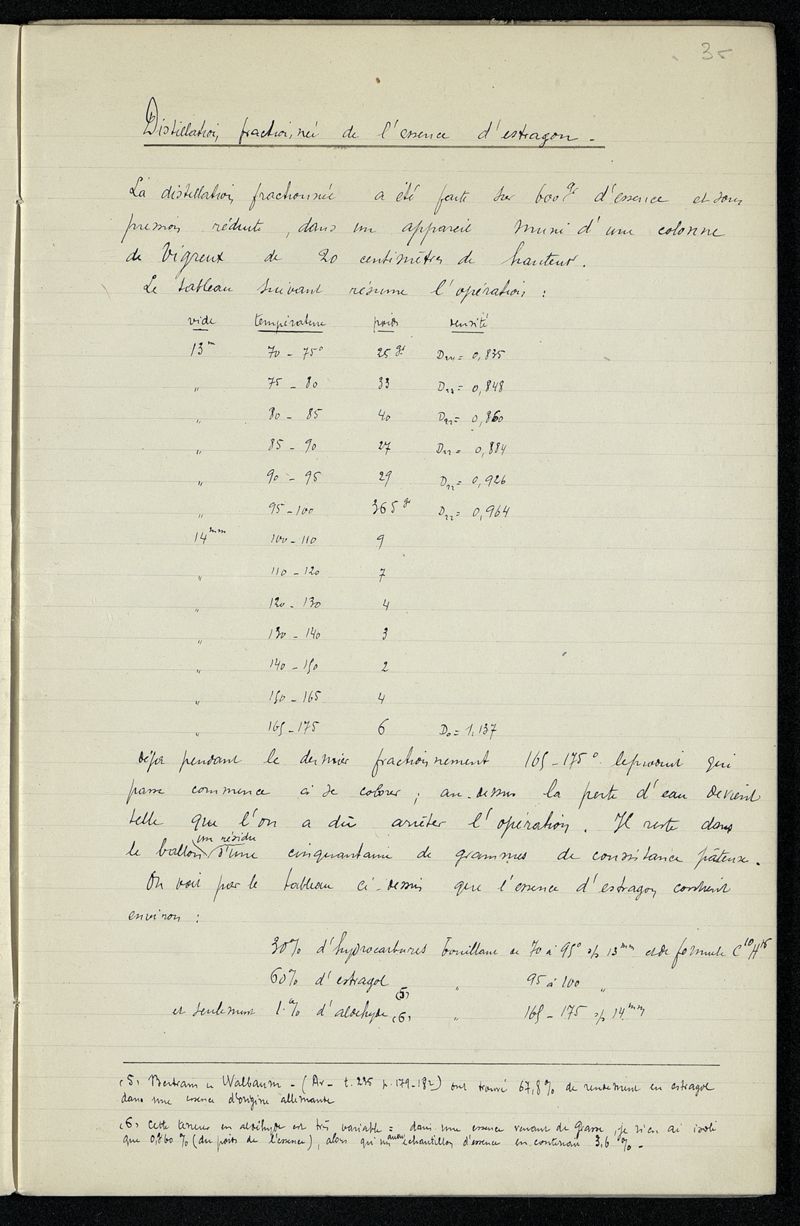 35
Distillation fractionnée de l'essence d'estragon -
La distillation fractionnée a été faite sur 600gr d'essence et sous
pression réduite, dans un appareil muni d'une colonne
de Vigreux de 20 centimètres de hauteur.
Le tableau suivant résume l'opération :
vide température poids densité
13m 70 - 75° 25gr D22 = 0,835
" 75 - 80 33 D22 = 0,848
" 80 - 85 40 D22 = 0,860
" 85 - 90 27 D22 = 0,884
" 90 - 95 29 D22 = 0,926
" 95 - 100 365gr D22 = 0,964
14mm 100 - 110 9
" 110 - 120 7
" 120 - 130 4
" 130 - 140 3
" 140 - 150 2
" 150 - 165 4
" 165 - 175 6 D0 = 1,137
déjà pendant le dernier fractionnement 165-175° le produit qui
passe commence à se colorer ; au-dessus la perte d'eau devient
telle que l'on a dû arrêter l'opération. Il reste dans
le ballon un résidu d'une cinquantaine de grammes de consistance pâteuse.
On voit par le tableau ci-dessus que l'essence d'estragon contient
environ :
30% d'hydrocarbures bouillant de 70 à 95° s/p 13mm et de formule C10H16
60% d'estragol (5) " 95 à 100 "
et seulement 1% d'aldéhyde (6) " 165 - 175 s/p 14mm
(5) Bertram u Walbaum - (Ar - t. 235 p. 179-182) ont trouvé 67,8% de rendement en estragol
dans une essence d'origine allemande
(6) Cette teneur en aldéhyde est très variable = dans une essence venant de Grasse, je n'en ai isolé
que 0,860% (du poids de l'essence), alors qu'un autre échantillon d'essence en contenait 3,6 % -